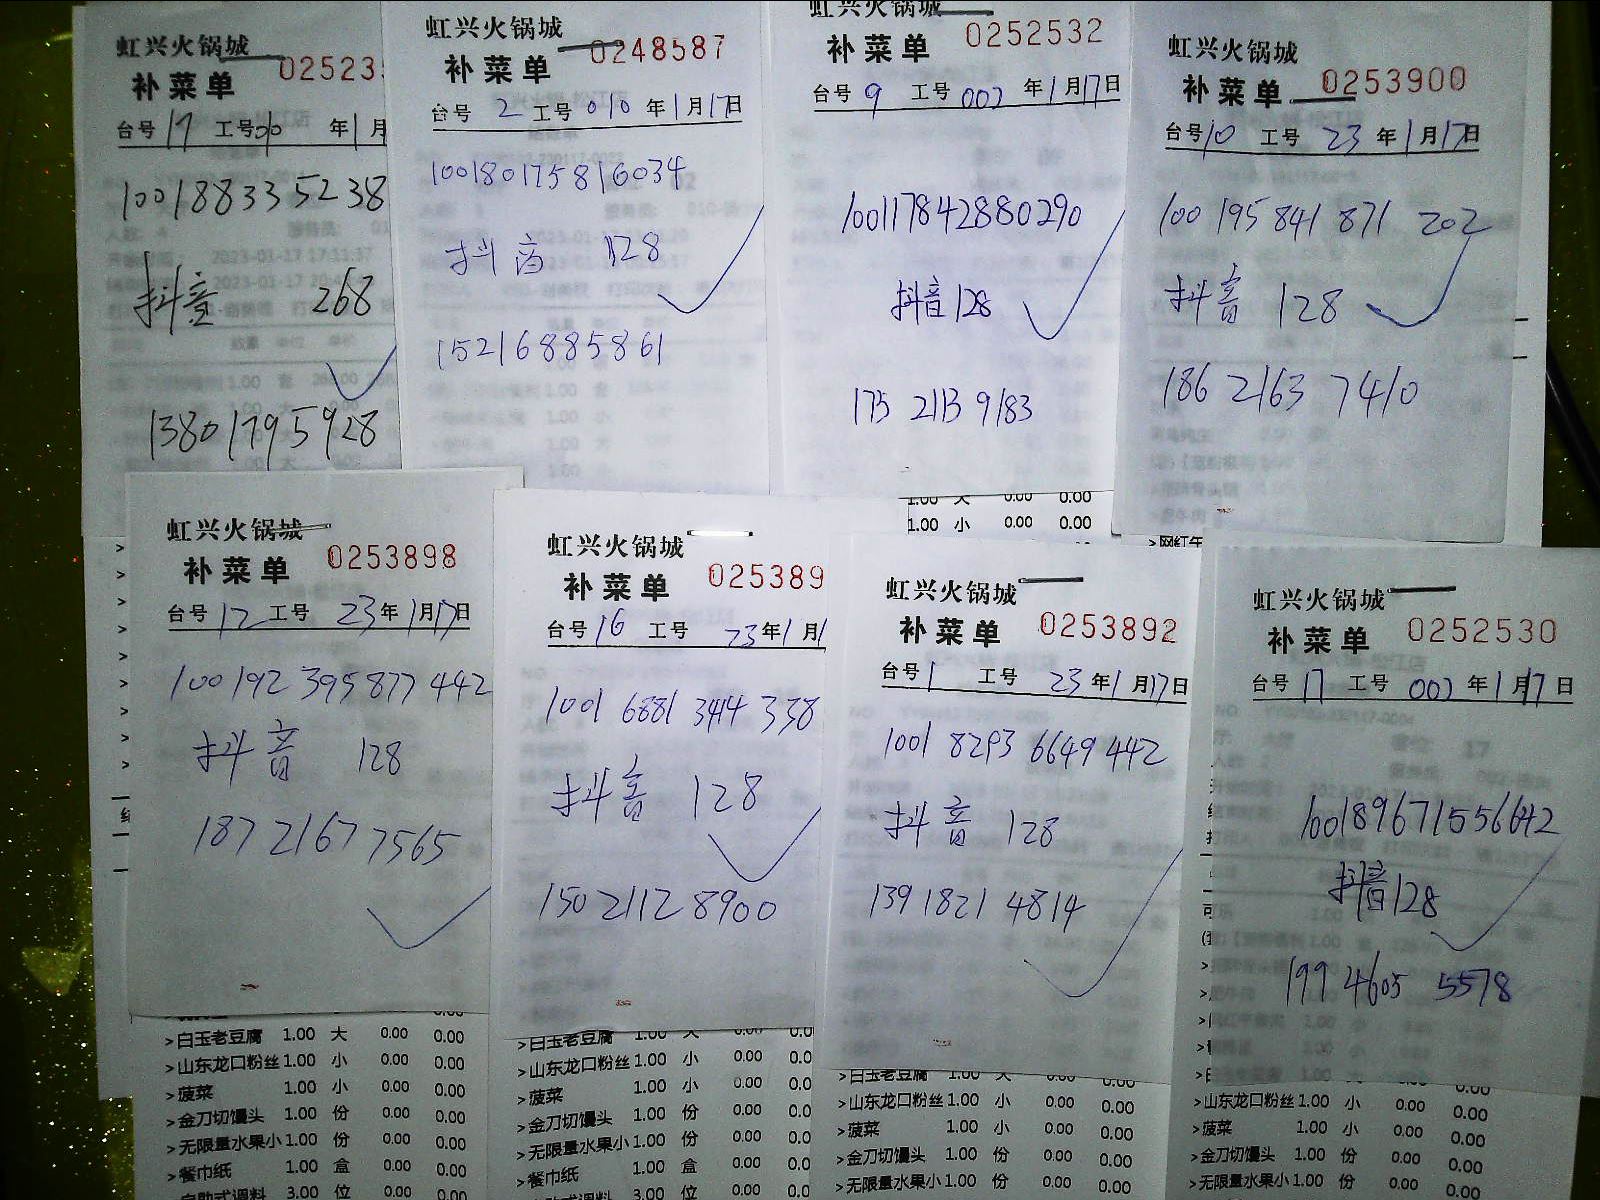 虹兴火锅城
补菜单 02523
台号 17 工号 010 年1月
100188335238
抖音 268
13801795928
虹兴火锅城
补菜单 0248587
台号 2 工号 010 年1月17日
100180175816034
抖音 128
15216885861
虹兴火锅城
补菜单 0252532
台号 9 工号 002 年1月17日
100117842880290
抖音128
175 2113 9183
虹兴火锅城
补菜单 0253900
台号 10 工号 23 年1月17日
100 195 841 871 202
抖音 128
186 2163 7410
1.00 大 0.00 0.00
1.00 小 0.00 0.00
虹兴火锅城
补菜单 0253898
台号 12 工号 23年1月17日
100192 395877 442
抖音 128
187 2167 7565
虹兴火锅城
补菜单 025389
台号 16 工号 23年1月1
1001 6881 3414 338
抖音 128
150 2112 8900
虹兴火锅城
补菜单 0253892
台号 1 工号 23年1月17日
1001 8293 6649 442
抖音 128
139 1821 4814
虹兴火锅城
补菜单 0252530
台号 17 工号 002 年1月17日
100189671556642
抖音128
199 4605 5578
>白玉老豆腐 1.00 大 0.00 0.00
>山东龙口粉丝 1.00 小 0.00 0.00
>菠菜 1.00 小 0.00 0.00
>金刀切馒头 1.00 份 0.00 0.00
>无限量水果小 1.00 份 0.00 0.00
>餐巾纸 1.00 盒 0.00 0.00
自助式调料 3.00 位 0.00 0.00
>白玉老豆腐 1.00 大 0.00 0.0
>山东龙口粉丝 1.00 小 0.00 0.0
>菠菜 1.00 小 0.00 0.0
>金刀切馒头 1.00 份 0.00 0.0
>无限量水果小 1.00 份 0.00 0.0
>餐巾纸 1.00 盒 0.00 0.0
自助式调料 3.00 位 0.00 0.0
>白玉老豆腐 1.00 大 0.00 0.00
>山东龙口粉丝 1.00 小 0.00 0.00
>菠菜 1.00 小 0.00 0.00
>金刀切馒头 1.00 份 0.00 0.00
>无限量水果小 1.00 份 0.00 0.00
>山东龙口粉丝 1.00 小 0.00 0.00
>菠菜 1.00 小 0.00 0.00
>金刀切馒头 1.00 份 0.00 0.00
>无限量水果小 1.00 份 0.00 0.00